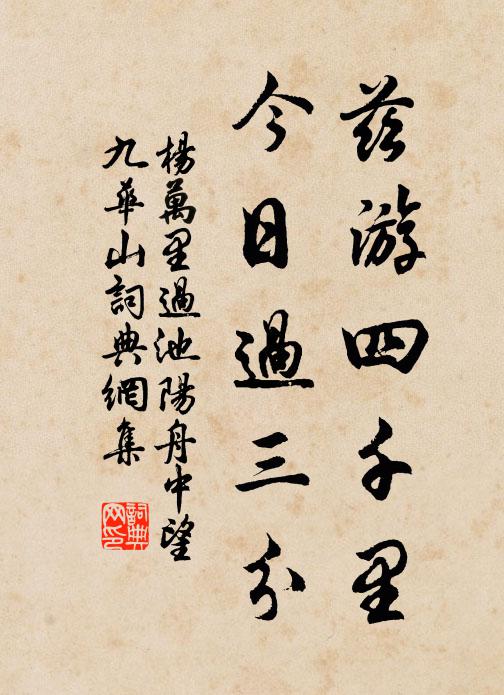 茲游四千里
今日過三分
楊萬里過池陽舟中望
九華山詞典網集
詞典
网印